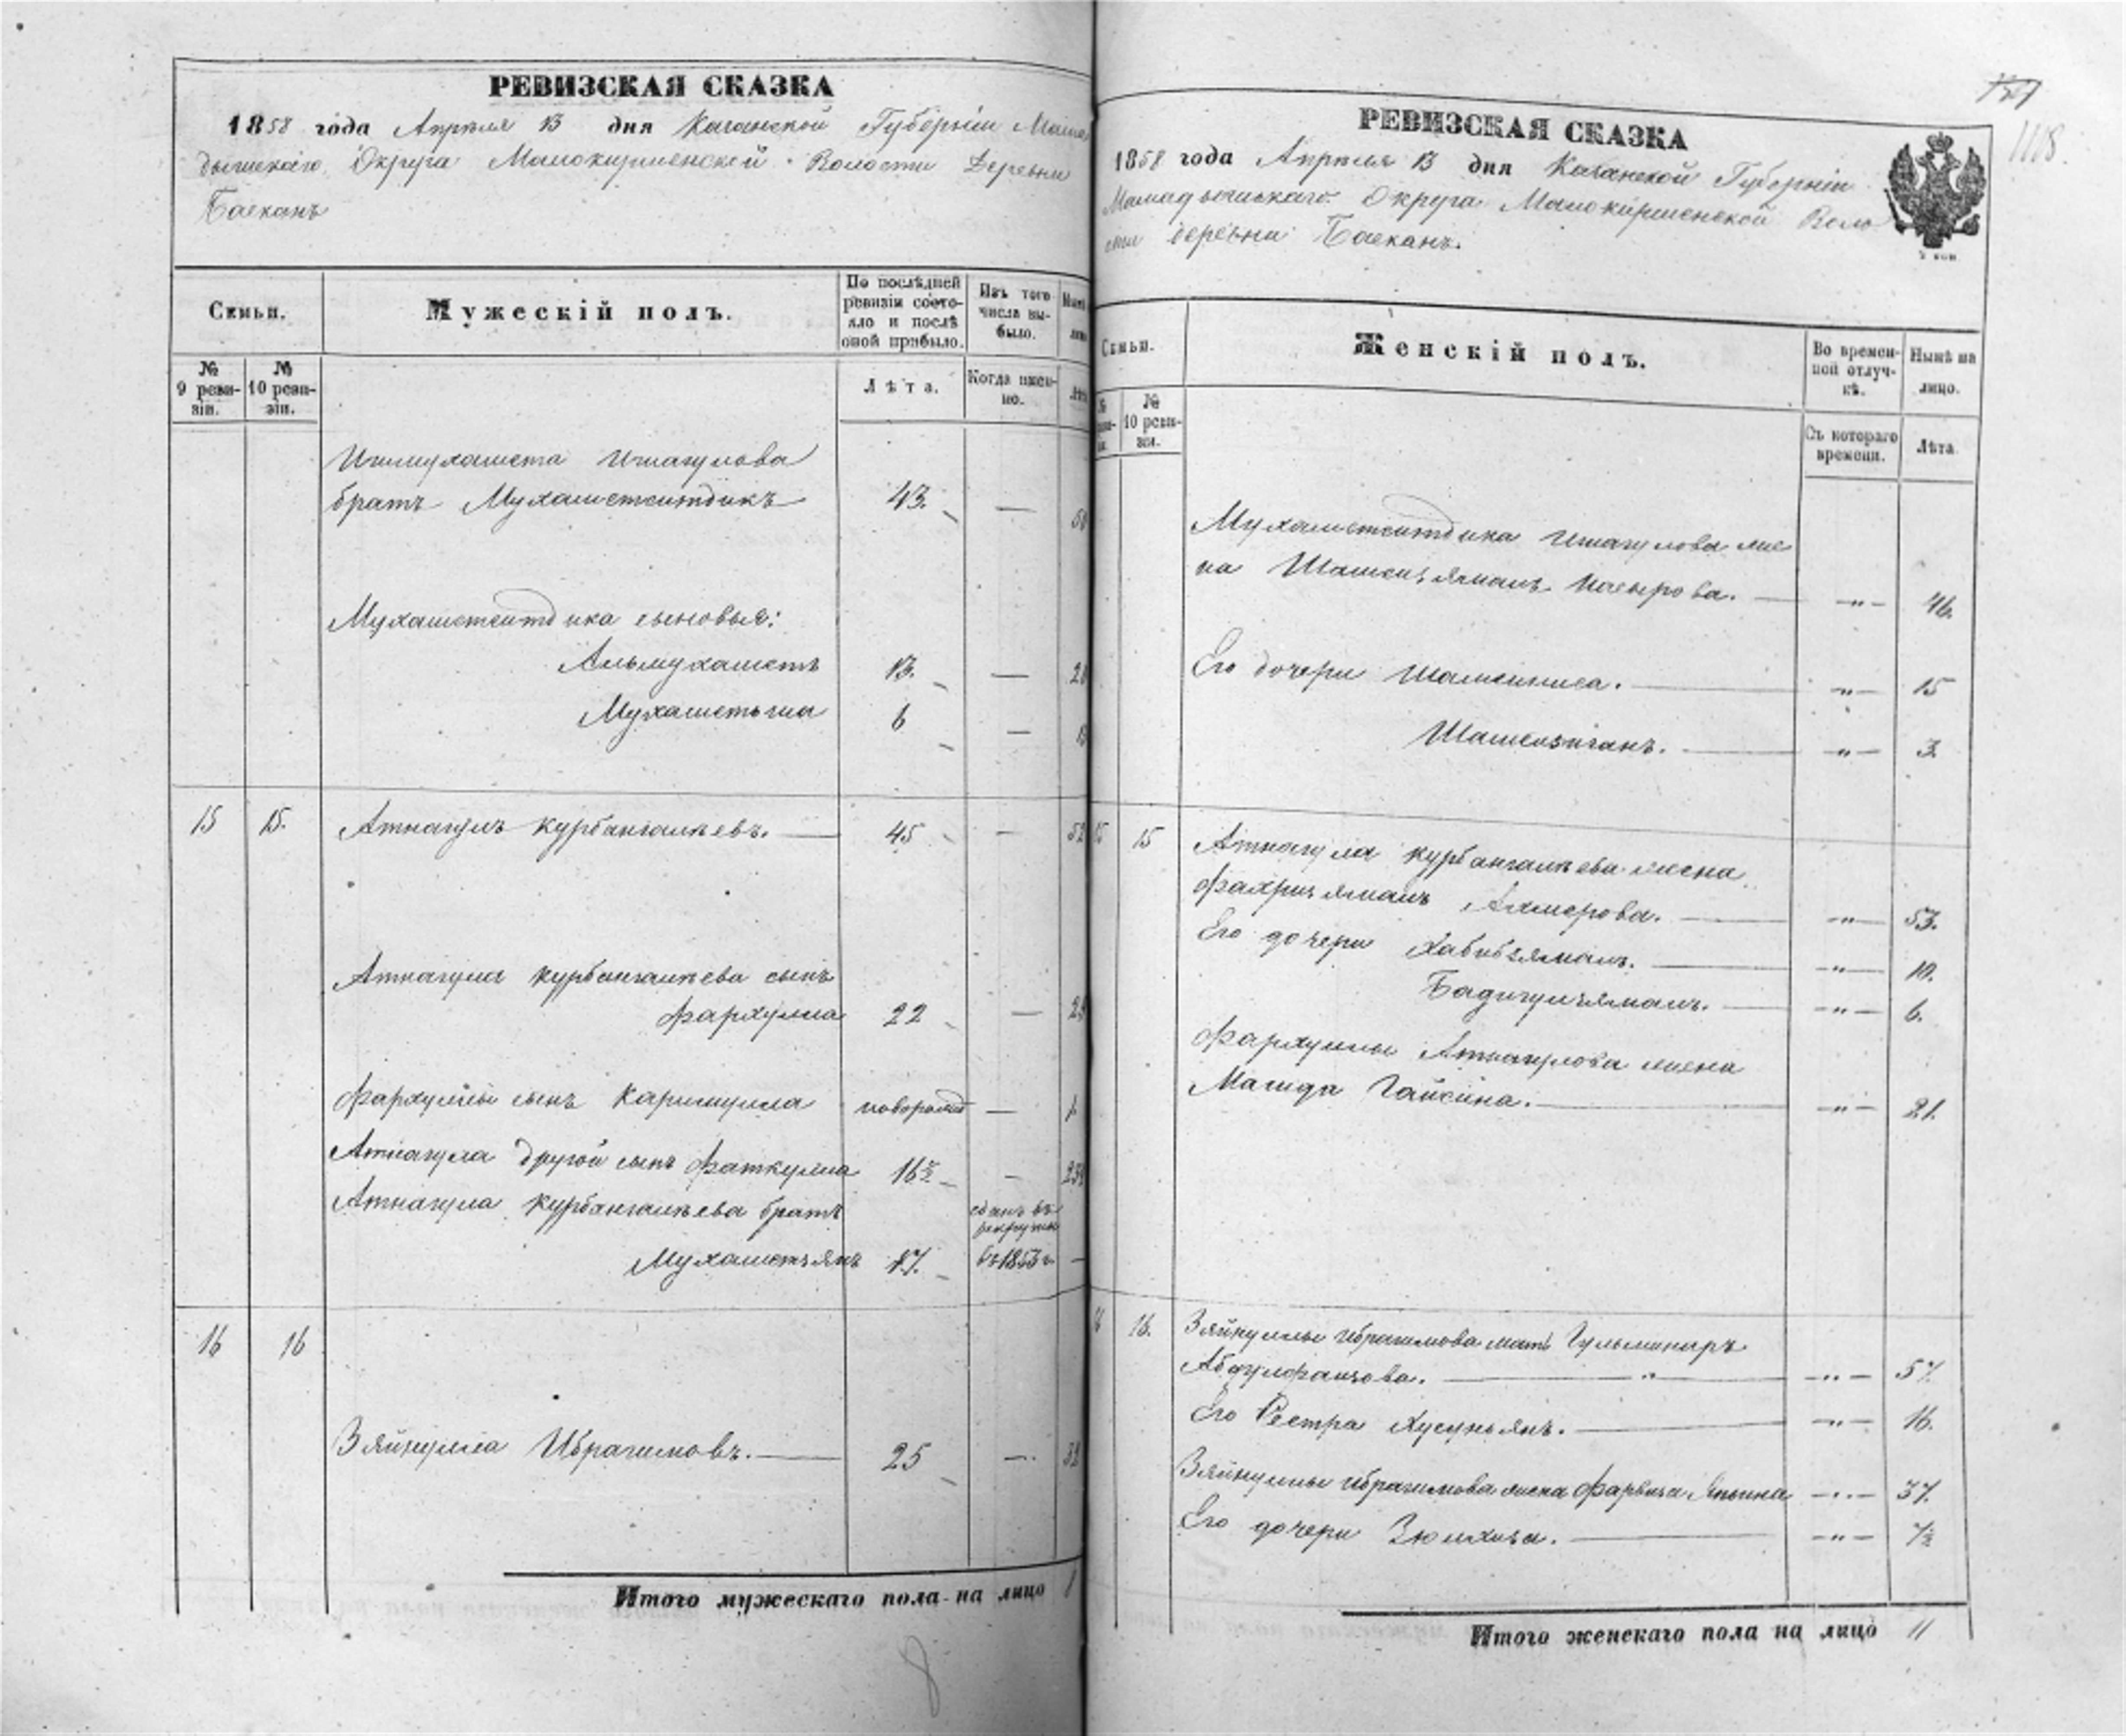 РЕВИЗСКАЯ СКАЗКА
1858 года Апреля 13 дня Казанской Губернiи Мама
дышскаго Округа Малокирменской Волости Деревни
Баекань
Семьи.
Мужескiй полъ.
По послѣдней
ревизiи состо-
яло и послѣ
оной прибыло.
Изъ того
числа вы-
было.
№
9 реви-
зiи.
№
10 реви-
зiи.
Лѣта.
Когда имен-
но.
Ишмухамета Ишагулова
братъ Мухаметситдикъ 43. —
Мухаметситдика сыновья:
Альмухаметъ 13. —
Мухаметьша 6 —
15 15. Атнагулъ Курбангалѣевъ. — 45 — 52
Атнагула Курбангалѣева сынъ
Фархулла 22 —
Фархуллы сынъ Каримулла новорожд —
Атнагула другой сынъ Фаткулла 16½ —
Атнагула Курбангалѣева братъ
Мухаметьянъ 17. сданъ въ рекруты въ 1853 г. —
16 16
Зяйнулла Ибрагимовъ. — 25 —
Итого мужескаго пола на лицо
8
РЕВИЗСКАЯ СКАЗКА
1118.
1858 года Апреля 13 дня Казанской Губернiи
Мамадышскаго Округа Малокирменской Воло
сти деревни Баеканъ.
Семьи.
Женскiй полъ.
Во времен-
ной отлуч-
кѣ.
Нынѣ на
лицо.
№
10 реви-
зiи.
Съ котораго
времени.
Лѣта.
Мухаметситдика Ишагулова же
на Шамсиямалъ Насырова. — „ — 46.
Его дочери Шамсиниса. — „ — 15
Шамсизиганъ. — „ — 3.
15 15 Атнагула Курбангалѣева жена
Фахриямалъ Ахмерова. — „ — 53.
Его дочери Хабибзямалъ. — „ — 10.
Бадигулъямалъ. — „ — 6.
Фархуллы Атнагулова жена
Магида Гайсина. — „ — 21.
16. Зяйнуллы Ибрагимова мать Гульминаръ
— „ — 57.
Его Сестра Хусуньянъ. — „ — 16.
Зяйнуллы Ибрагимова жена — „ — 37.
Его дочери — „ — 7½
Итого женскаго пола на лицо 11